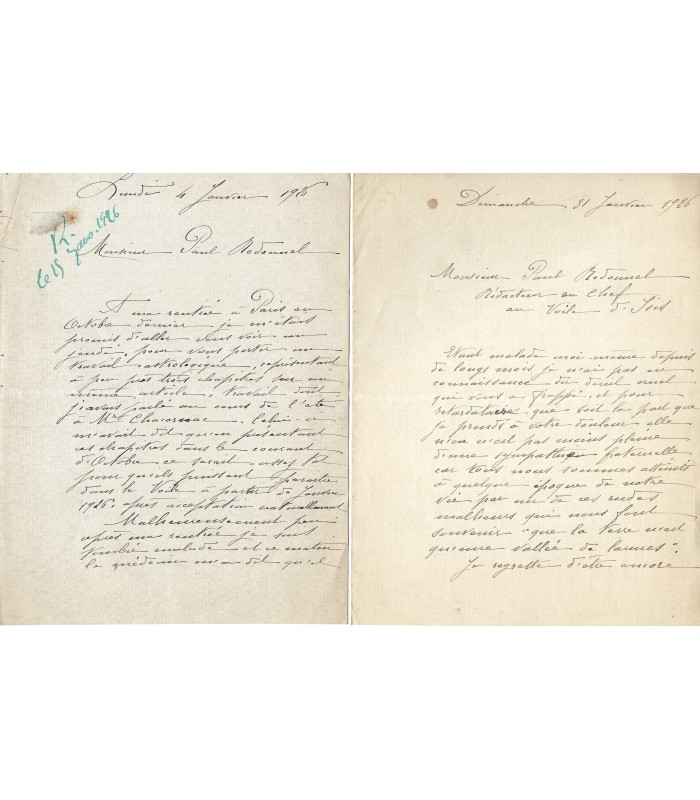 Lundi 4 Janvier 1926
R.
Ce 15 janv. 1926
Monsieur Paul Redonnel
A ma rentrée à Paris en
Octobre dernier je m'étais
promis d'aller vous voir un
jeudi, pour vous porter un
travail astrologique, représentant
à peu près trois chapitres sur un
même article, travail dont
j'avais parlé au cours de l'été
à Mr Chacornac. Celui-ci
m'avait dit qu'en présentant
ces chapitres dans le courant
d'Octobre ce serait assez tôt
pour qu'ils puissent paraître
dans le Voile à partir de Janvier
1926, après acceptation naturellement
Malheureusement peu
après ma rentrée je suis
tombée malade et ce matin
le médecin m'a dit qu'il
Dimanche 31 Janvier 1926
Monsieur Paul Redonnel
Rédacteur en Chef
au Voile d'Isis
Etant malade moi-même depuis
de longs mois je n'ai pas eu
connaissance du deuil cruel
qui vous a frappé, et pour
retardataire que soit la part que
je prends à votre douleur elle
n'en est pas moins pleine
d'une sympathie fraternelle
car tous nous sommes atteints
à quelque époque de notre
vie par un de ces rudes
malheurs qui nous font
souvenir "que la terre n'est
qu'une vallée de larmes".
Je regrette d'être encore